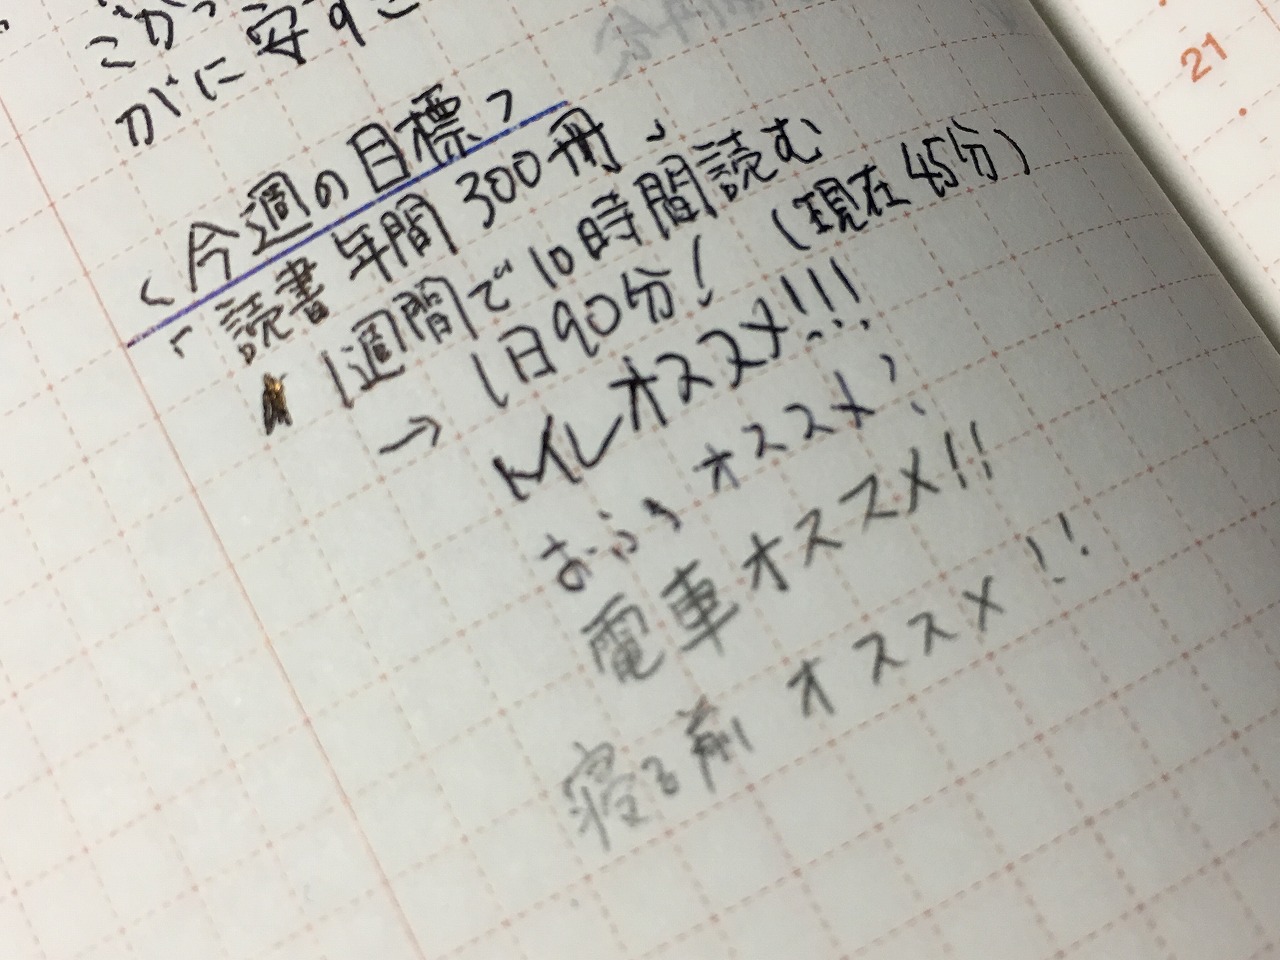 がに安すぎ
<今週の目標>
「読書 年間 300冊」
1週間で10時間読む
→ 1日90分! (現在45分)
オススメ!!!
おふろ オススメ!
電車オススメ!!
寝る前 オススメ!!
21